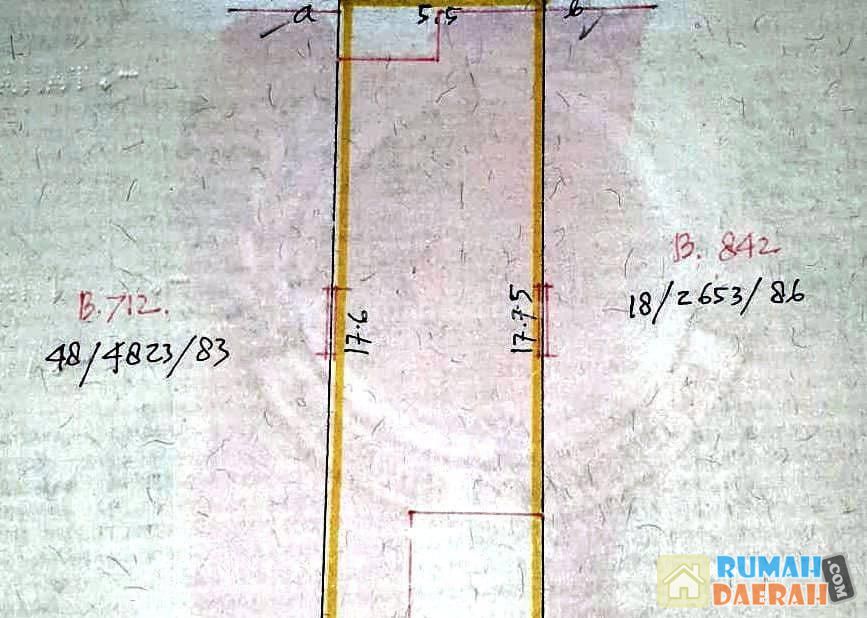 a 5.5 b
B. 842
18/2653/86
B.712.
48/4823/83
17.6
17.75
RUMAH
DAERAH
.COM